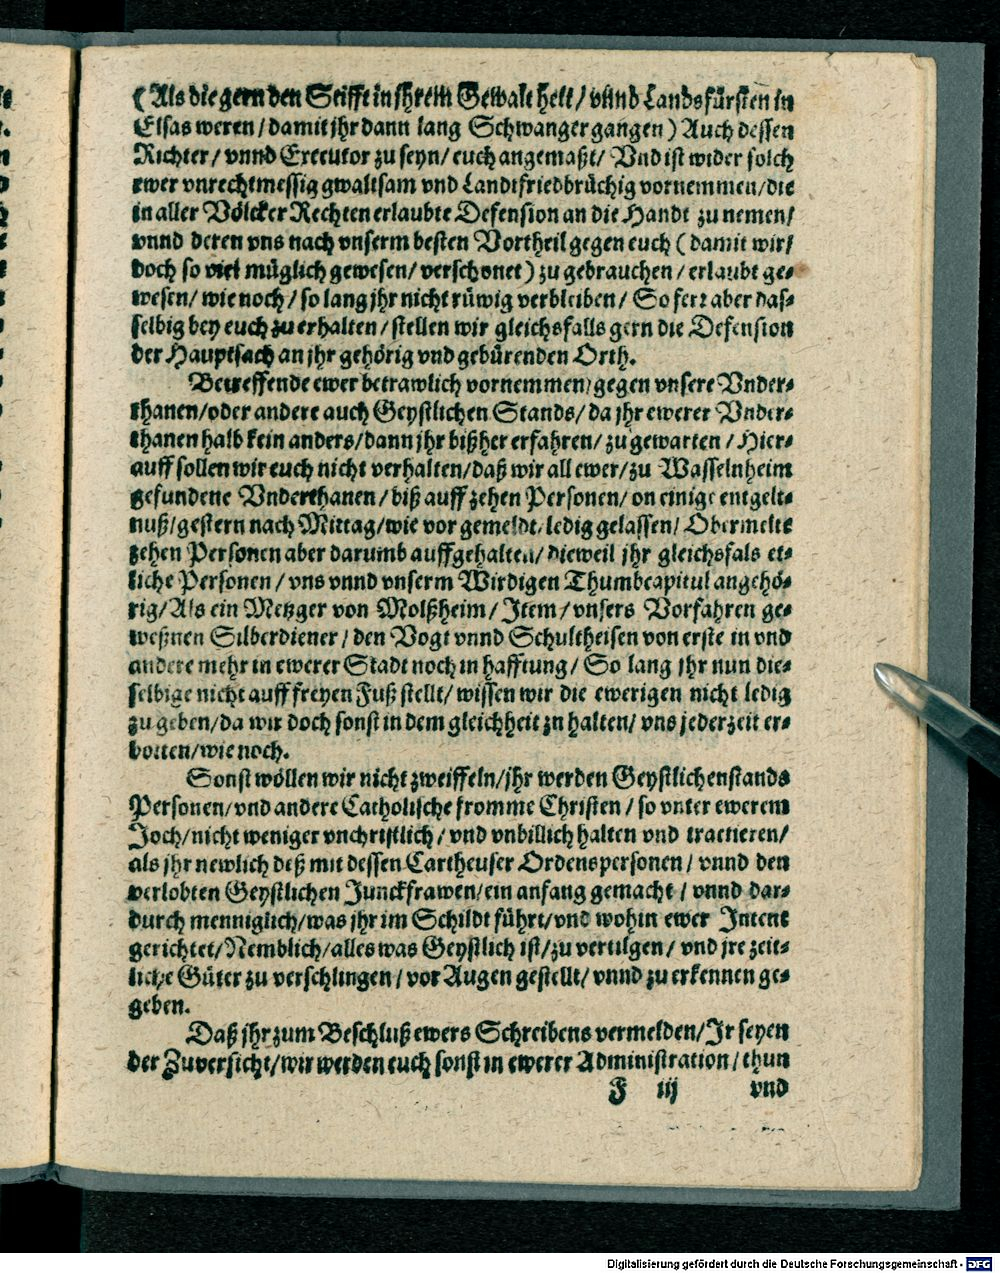 (Als die gern den Stifft in jhrem Gewalt hett / vnnd Landsfürsten in
Elsas weren / damit jhr dann lang Schwanger gangen) Auch dessen
Richter / vnnd Executor zu seyn / euch angemaßt / Vnd ist wider solch
ewer vnrechtmessig gwaltsam vnd Landtfriedbrüchig vornemmen / die
in aller Völcker Rechten erlaubte Defension an die Handt zu nemen /
vnnd deren vns nach vnserm besten Vortheil gegen euch (damit wir /
doch so viel müglich gewesen / verschonet) zu gebrauchen / erlaubt ge-
wesen / wie noch / so lang jhr nicht rüwig verbleiben / So fern aber das-
selbig bey euch zu erhalten / stellen wir gleichsfalls gern die Defension
der Hauptsach an jhr gehörig vnd gebürenden Orth.
Betreffende ewer betrawlich vornemmen / gegen vnsere Vnder-
thanen / oder andere auch Geystlichen Stands / da jhr ewerer Vnder-
thanen halb kein anders / dann jhr bißher erfahren / zu gewarten / Hier-
auff sollen wir euch nicht verhalten / daß wir all ewer / zu Wasselnheim
gefundene Vnderthanen / biß auff zehen Personen / on einige entgelt-
nuß / gestern nach Mittag / wie vor gemeldt / ledig gelassen / Obermelte
zehen Personen aber darumb auffgehalten / dieweil jhr gleichsfals et-
liche Personen / vns vnnd vnserm Wirdigen Thumbcapitul angehö-
rig / Als ein Metzger von Molßheim / Item / vnsers Vorfahren ge-
weßnen Silberdiener / den Vogt vnnd Schultheisen von erste in vnd
andere mehr in ewerer Stadt noch in hafftung / So lang jhr nun die-
selbige nicht auff freyen Fuß stellt / wissen wir die ewerigen nicht ledig
zu geben / da wir doch sonst in dem gleichheit zn halten / vns jederzeit er-
botten / wie noch.
Sonst wöllen wir nicht zweiffeln / jhr werden Geystlichenstands
Personen / vnd andere Catholische fromme Christen / so vnter ewerem
Joch / nicht weniger vnchristlich / vnd vnbillich halten vnd tractieren /
als jhr newlich deß mit dessen Cartheuser Ordenspersonen / vnnd den
verlobten Geystlichen Junckfrawen / ein anfang gemacht / vnnd dar-
durch menniglich / was jhr im Schildt führt / vnd wohin ewer Intent
gerichtet / Nemblich / alles was Geystlich ist / zu vertilgen / vnd jre zeit-
liche Güter zu verschlingen / vor Augen gestellt / vnnd zu erkennen ge-
geben.
Daß jhr zum Beschluß ewers Schreibens vermelden / Ir seyen
der Zuversicht / wir werden euch sonst in ewerer Administration / thun
F iij vnd
Digitalisierung gefördert durch die Deutsche Forschungsgemeinschaft - DFG